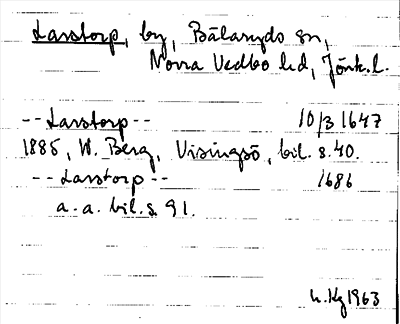 Larstorp, by, Bälaryds sn,
Norra Vedbo hd, Jönk.l.
--Larstorp-- 10/3 1647
1885, W. Berg, Visingsö, bil. s. 40.
--Larstorp-- 1686
a.a. bil. s. 91.
1963